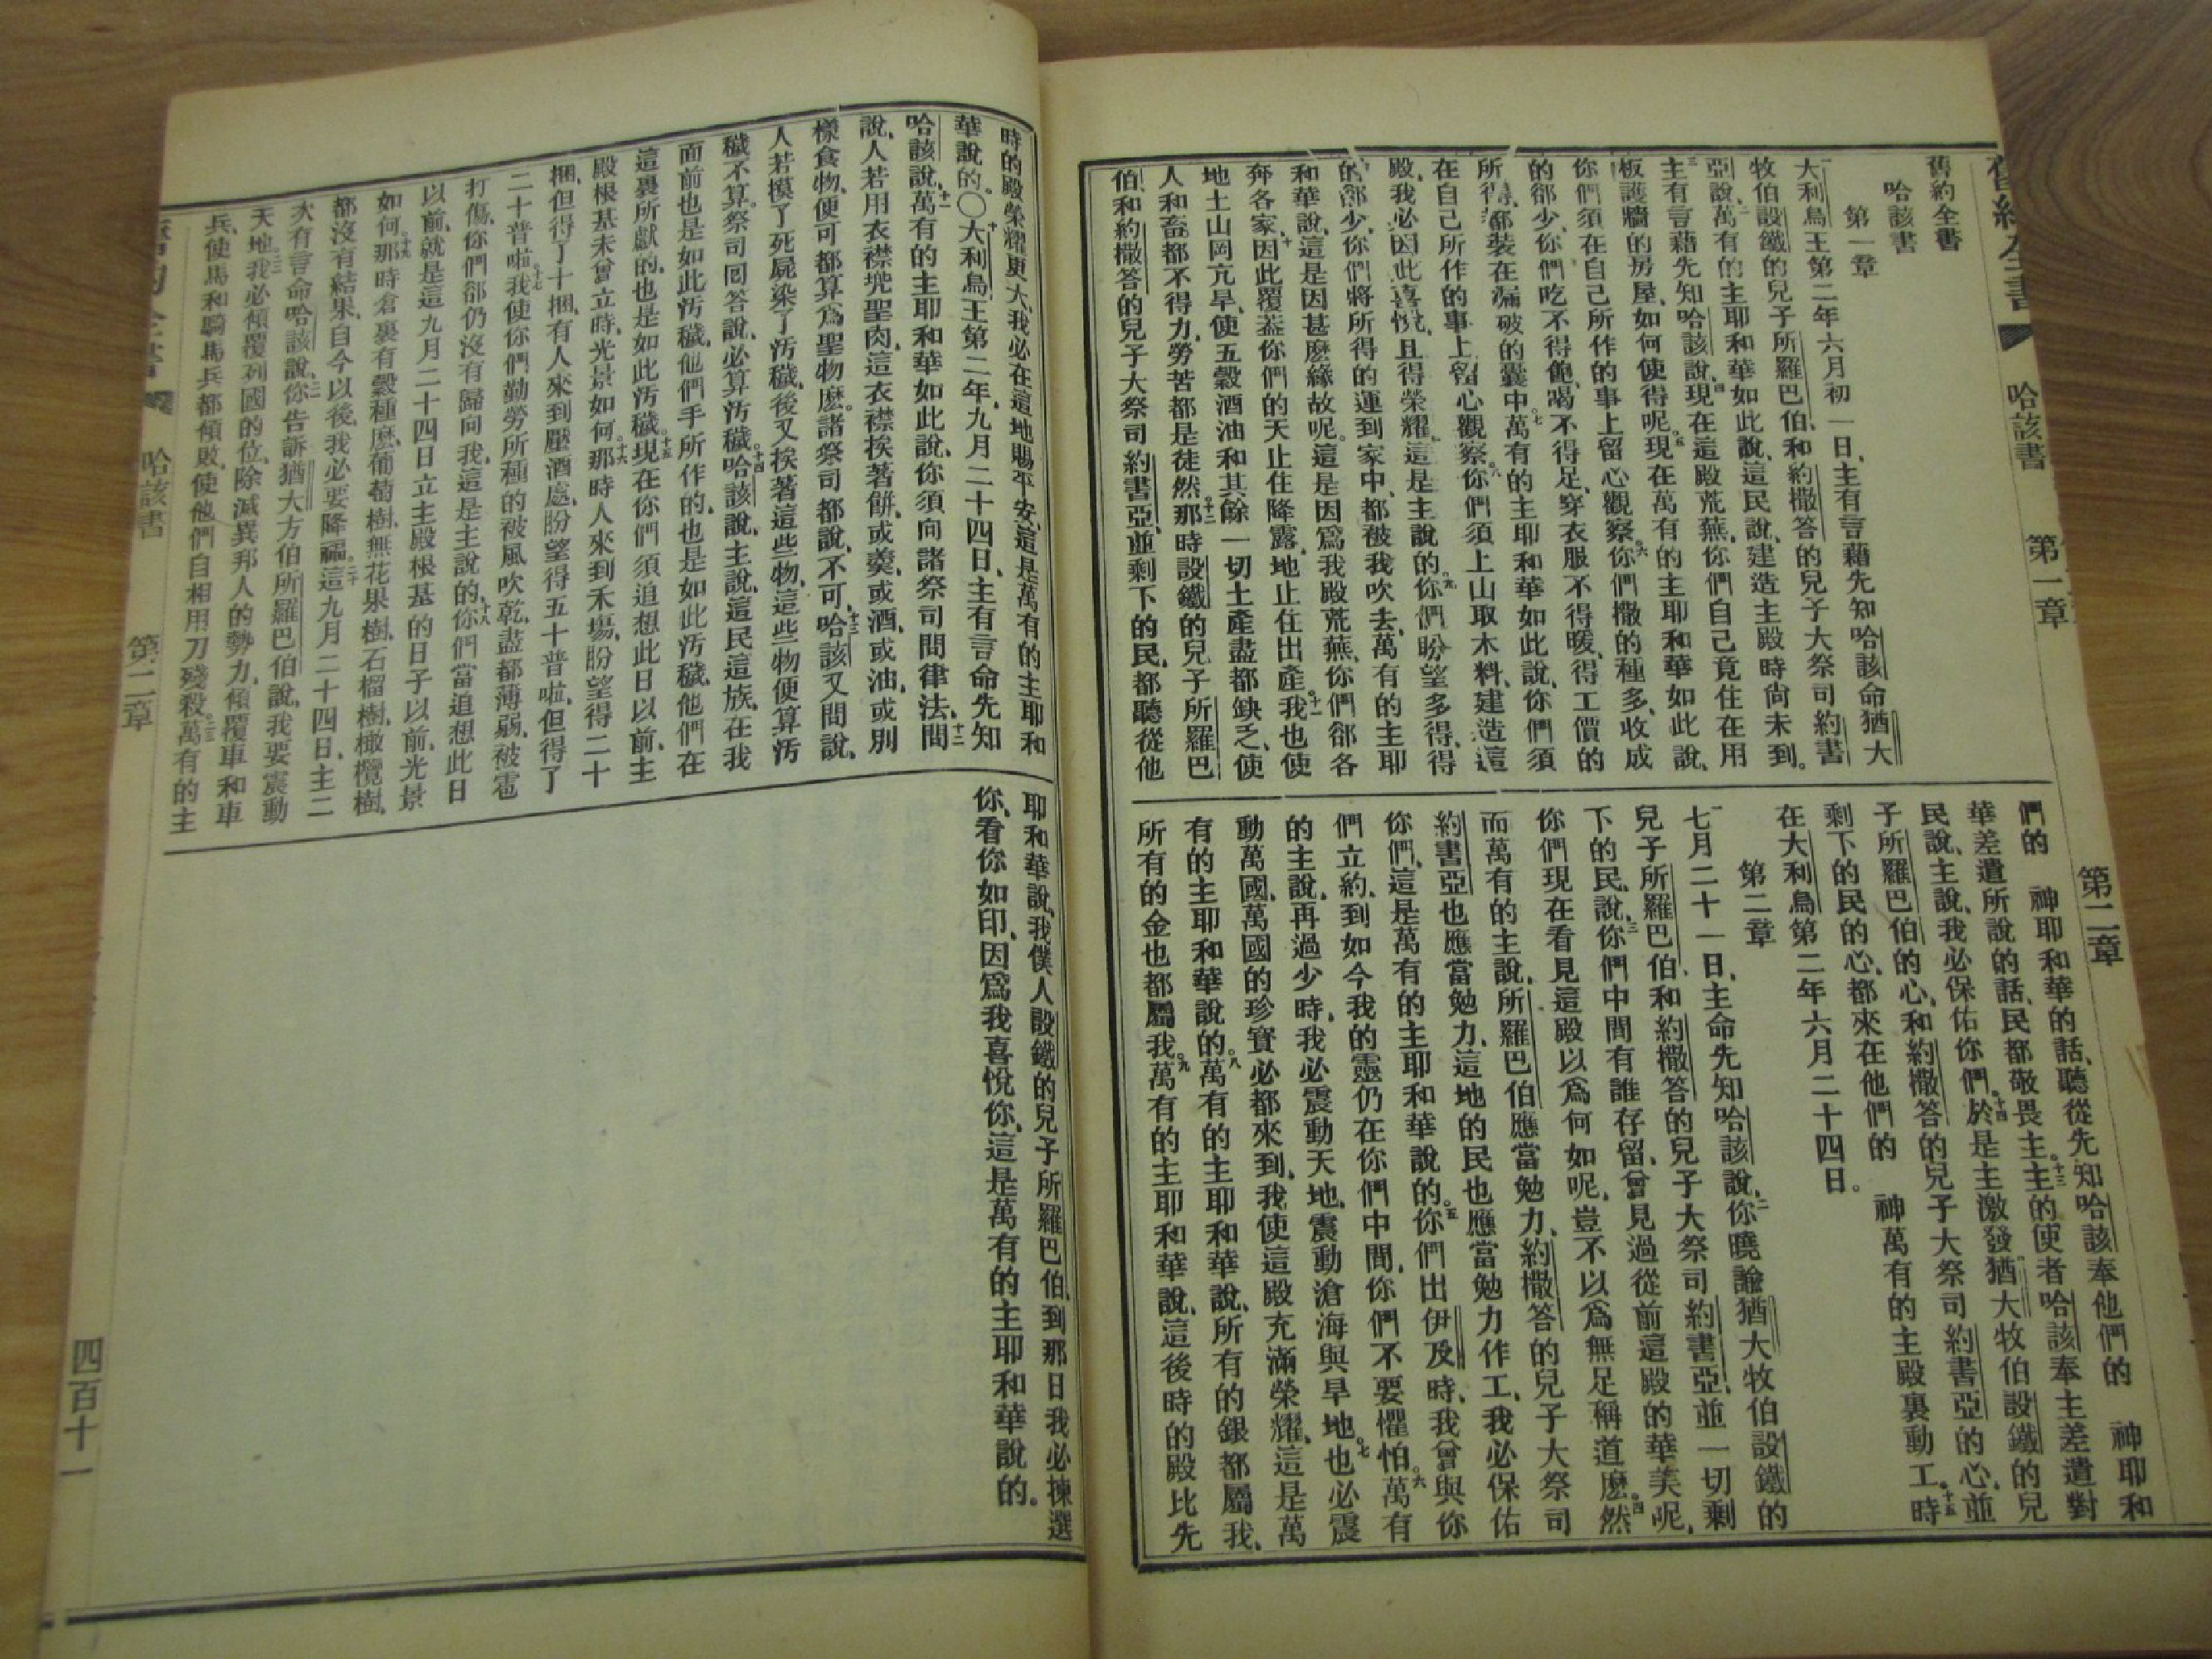 舊約全書
哈該書
第一章
大利烏王第二年六月初一日、主有言藉先知哈該命猶大
牧伯設鐵的兒子所羅巴伯、和約撒答的兒子大祭司約書
亞說、二萬有的主耶和華如此說、這民說、建造主殿時尚未到。
三主有言藉先知哈該說、四現在這殿荒蕪、你們自己竟住在用
板護牆的房屋、如何使得呢。五現在萬有的主耶和華如此說、
你們須在自己所作的事上留心觀察。六你們撒的種多、收成
的郤少、你們吃不得飽、喝不得足、穿衣服不得暖、得工價的
所得、都裝在漏破的囊中。七萬有的主耶和華如此說、你們須
在自己所作的事上留心觀察。八你們須上山取木料、建造這
殿、我必因此喜悅、且得榮耀、這是主說的。九你們盼望多得、得
的郤少、你們將所得的運到家中、都被我吹去、萬有的主耶
和華說、這是因甚麼緣故呢。這是因爲我殿荒蕪、你們郤各
奔各家。十因此覆蓋你們的天止住降露、地止住出產。十一我也使
地土山岡亢旱、使五穀酒油和其餘一切土產盡都缺乏、使
人和畜都不得力、勞苦都是徒然。十二那時設鐵的兒子所羅巴
伯、和約撒答的兒子大祭司約書亞、並剩下的民、都聽從他
們的　神耶和華的話、聽從先知哈該奉他們的　神耶和
華差遣所說的話、民都敬畏主。十三主的使者哈該奉主差遣對
民說、主說、我必保佑你們。十四於是主激發猶大牧伯設鐵的兒
子所羅巴伯的心、和約撒答的兒子大祭司約書亞的心、並
剩下的民的心、都來在他們的　神萬有的主殿裏動工。十五時
在大利烏第二年六月二十四日。
第二章
七月二十一日、主命先知哈該說、二你曉諭猶大牧伯設鐵的
兒子所羅巴伯、和約撒答的兒子大祭司約書亞、並一切剩
下的民說、三你們中間有誰存留、曾見過從前這殿的華美呢、
你們現在看見這殿以爲何如呢、豈不以爲無足稱道麼。四然
而萬有的主說、所羅巴伯應當勉力、約撒答的兒子大祭司
約書亞也應當勉力、這地的民也應當勉力作工、我必保佑
你們、這是萬有的主耶和華說的。五你們出伊及時、我曾與你
們立約、到如今我的靈仍在你們中間、你們不要懼怕。六萬有
的主說、再過少時、我必震動天地、震動滄海與旱地。七也必震
動萬國、萬國的珍寶必都來到、我使這殿充滿榮耀、這是萬
有的主耶和華說的。八萬有的主耶和華說、所有的銀都屬我、
所有的金也都屬我。九萬有的主耶和華說、這後時的殿比先
舊約全書　哈該書　第一章　第二章
時的殿榮耀更大、我必在這地賜平安、這是萬有的主耶和
華說的。〇十大利烏王第二年、九月二十四日、主有言命先知
哈該說、十一萬有的主耶和華如此說、你須向諸祭司問律法、問
說、十二人若用衣襟兜聖肉、這衣襟挨著餅、或羹、或酒、或油、或別
樣食物、便可都算爲聖物麽。諸祭司都說、不可、十三哈該又問說、
人若摸了死屍染了汚穢、後又挨著這些物、這些物便算汚
穢不算。祭司囘答說、必算汚穢。十四哈該說、主說、這民這族、在我
面前也是如此汚穢、他們手所作的、也是如此汚穢、他們在
這裏所獻的、也是如此汚穢。十五現在你們須追想此日以前、主
殿根基未曾立時、光景如何。十六那時人來到禾場、盼望得二十
捆、但得了十捆、有人來到壓酒處、盼望得五十普啦、但得了
二十普啦。十七我使你們勤勞所種的被風吹乾、盡都薄弱、被雹
打傷、你們郤仍沒有歸向我、這是主說的、十八你們當追想此日
以前、就是這九月二十四日立主殿根基的日子以前、光景
如何。十九那時倉裏有穀種麽、葡萄樹、無花果樹、石榴樹、橄欖樹、
都沒有結果、自今以後、我必要降福。二十這九月二十四日、主二
次有言命哈該說、二一你告訴猶大方伯所羅巴伯說、我要震動
天地。二二我必傾覆列國的位、除滅異邦人的勢力、傾覆車和車
兵、使馬和騎馬兵都傾敗、使他們自相用刀殘殺。二三萬有的主
耶和華說、我僕人設鐵的兒子所羅巴伯、到那日我必揀選
你、看你如印、因爲我喜悅你、這是萬有的主耶和華說的。
哈該書　第二章　四百十一